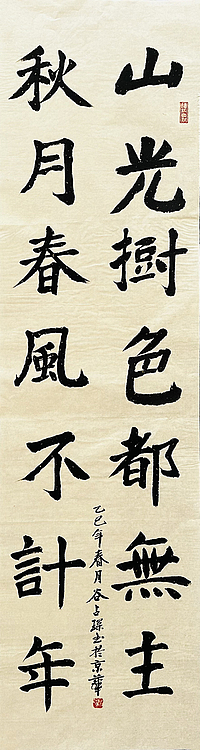 山光樹色都無主
秋月春風不計年
乙巳年春月谷占琛书於京華